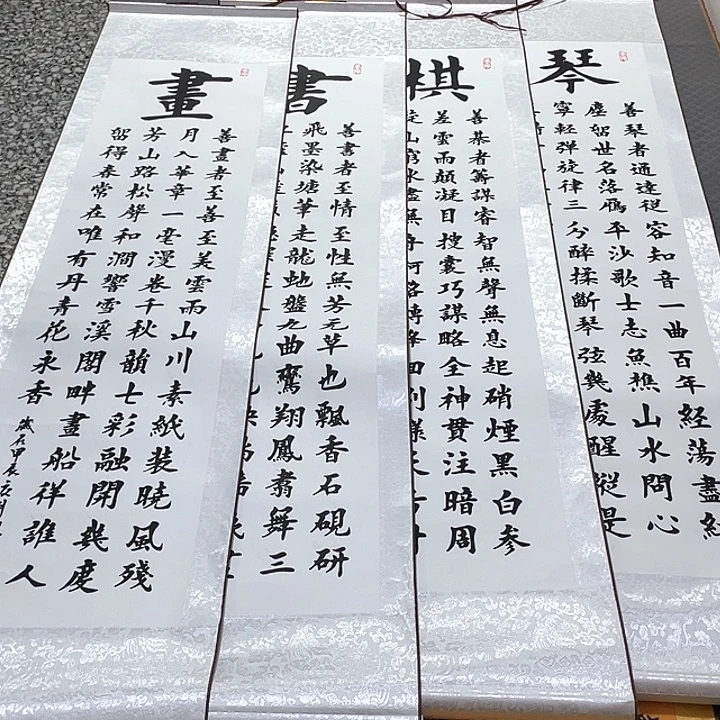 琴
善琴者通達從容知音一曲百年經蕩盡紅
塵留世名落雁平沙歌士志魚樵山水問心
寧輕弹旋律三分醉揉斷琴弦幾處醒縱是
棋
善棊者籌謀睿智無聲無息起硝煙黑白参
差雲雨顛凝目搜囊巧謀略全神貫注暗周
山窮水盡無
書
善書者至情至性無芳无草也飄香石硯研
飛墨染塘筆走龍虵盤九曲鸞翔鳳翥舞三
畫
善畫者至善至美雲雨山川素紙装曉風殘
月入華章一毫漫卷千秋韻七彩融開幾度
芳山路松聲和澗響雪溪閣畔畫船徉誰人
留得春常在唯有丹青花永香
歲在甲辰